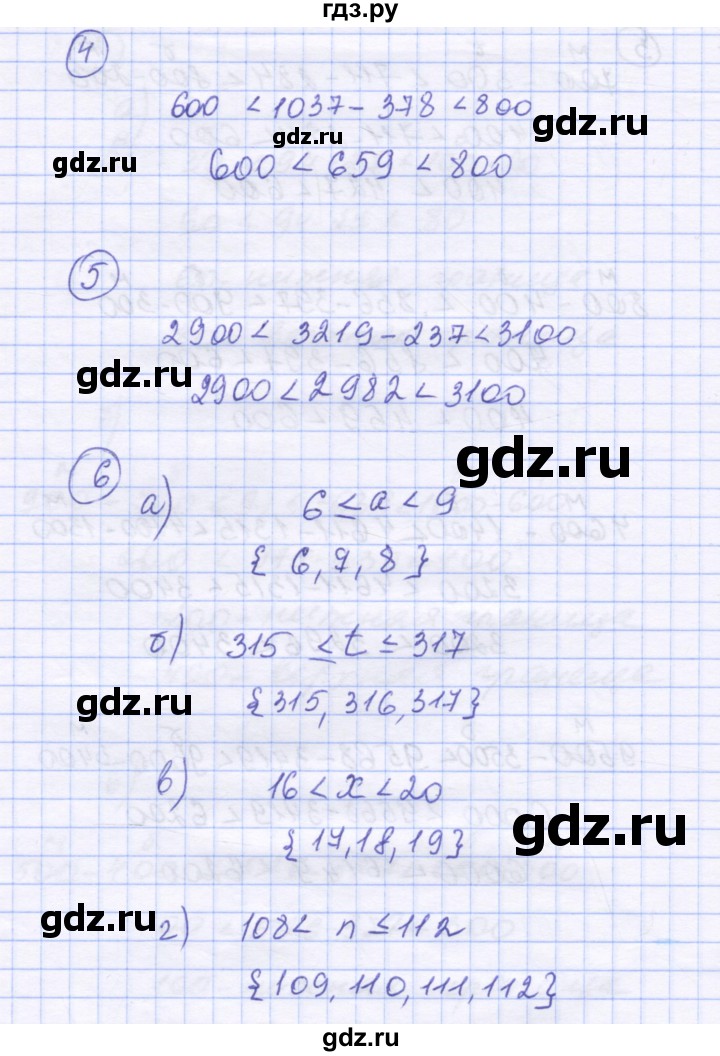 гдз.ру
4
600 < 1037 - 378 < 800
gdz.ru
gdz.ru
gdz.ru
600 < 659 < 800
5
2900 < 3219 - 237 < 3100
gdz.ru
2900 < 2982 < 3100
gdz.ru
6
а) 6 ≤ a < 9
{6, 7, 8}
б) 315 ≤ t ≤ 317
gdz.ru
{315, 316, 317}
в) 16 < x < 20
{17, 18, 19}
gdz.ru
gdz.ru
г) 108 < n ≤ 112
{109, 110, 111, 112}
gdz.ru